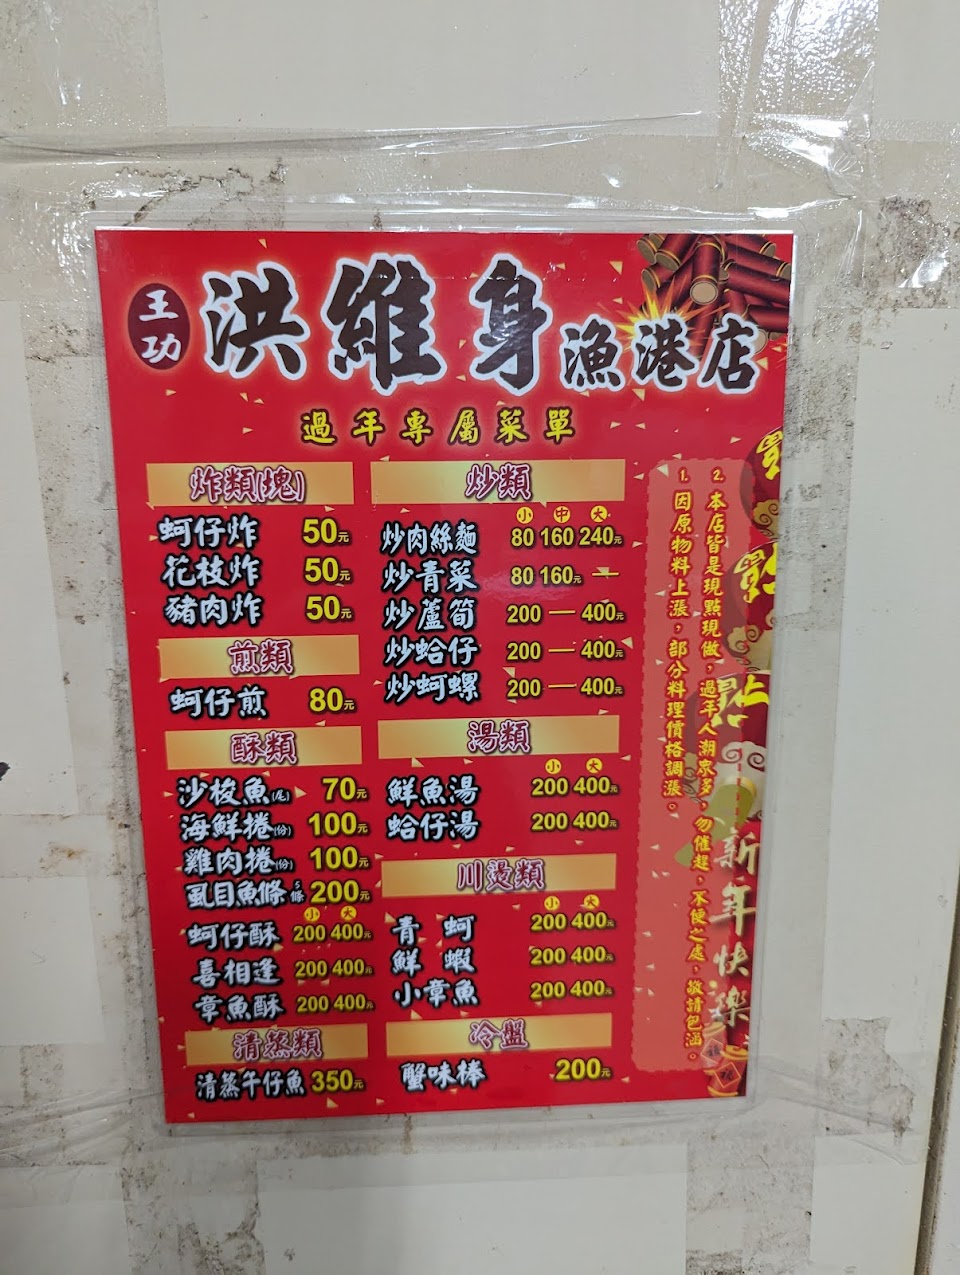 王功
洪維身漁港店
過年專屬菜單
炸類(塊)
蚵仔炸 50元
花枝炸 50元
豬肉炸 50元
煎類
蚵仔煎 80元
酥類
沙梭魚(尾) 70元
海鮮捲(份) 100元
雞肉捲(份) 100元
虱目魚條 5條 200元
小 大
蚵仔酥 200 400元
喜相逢 200 400元
章魚酥 200 400元
清蒸類
清蒸午仔魚 350元
炒類
小 中 大
炒肉絲麵 80 160 240元
炒青菜 80 160元 —
炒蘆筍 200 — 400元
炒蛤仔 200 — 400元
炒蚵螺 200 — 400元
湯類
小 大
鮮魚湯 200 400元
蛤仔湯 200 400元
川燙類
小 大
青蚵 200 400元
鮮蝦 200 400元
小章魚 200 400元
冷盤
蟹味棒 200元
1. 因原物料上漲，部分料理價格調漲。
2. 本店皆是現點現做，過年人潮眾多，勿催趕，不便之處，敬請包涵。
新年快樂